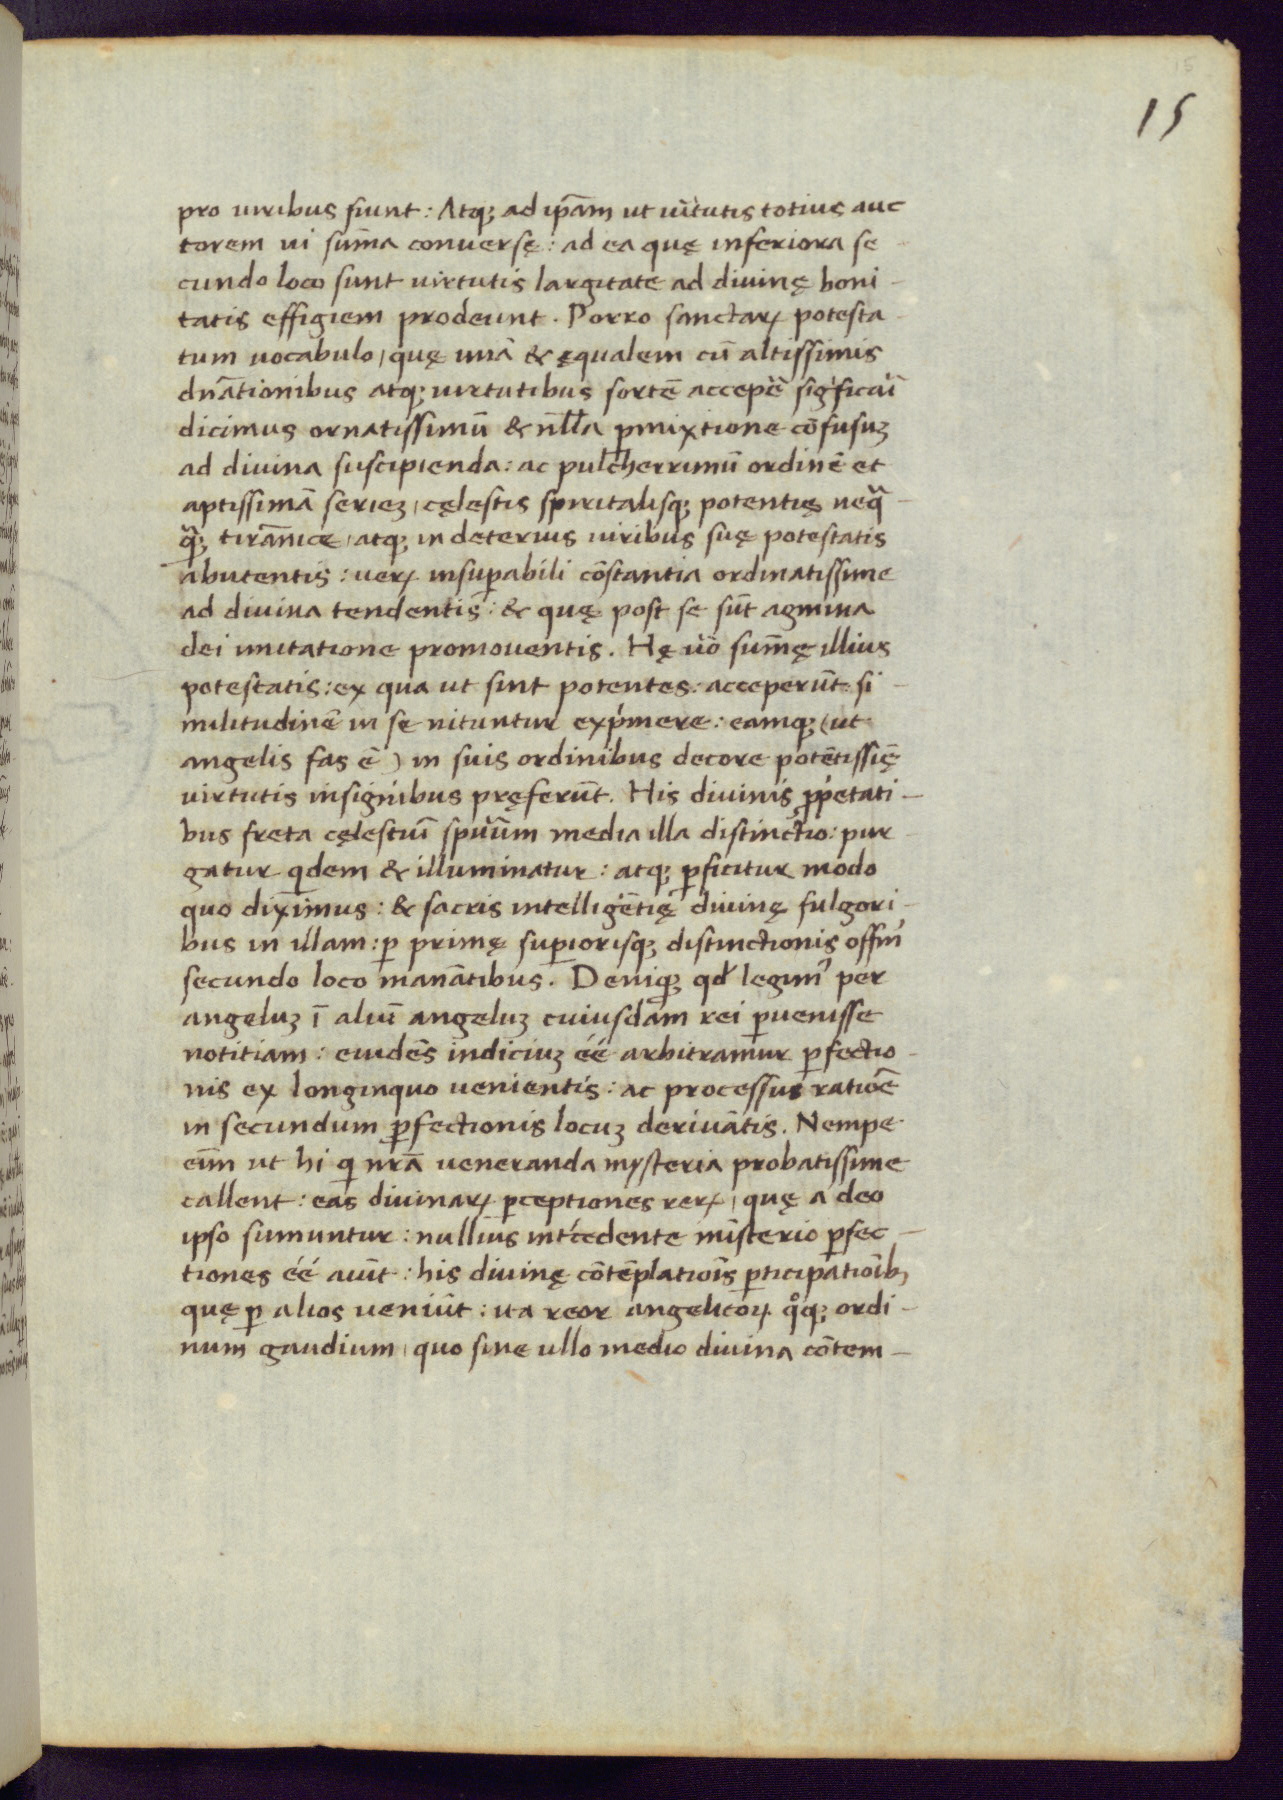 15
pro uiribus fiunt: Atq; ad ip̄am ut uirtutis totius auc
torem ui sum̄a conuersę: ad ea quę inferiora se-
cundo loco sunt virtutis largitate ad diuinę boni-
tatis effigiem prodeunt. Porro sanctaꝝ potesta-
tum uocabulo, quę unā & ęqualem cū altissimis
dn̄ationibus atq; uirtutibus sortē accepē
dicimus ornatissimū & nll̄a ꝑmixtione cōfusuꝫ
ad diuina suscipienda: ac pulcherrimū ordinē et
aptissimā serieꝫ, cęlestis spiritalisq; potentię neq̄-
q̄; tirān̄icę, atq; in deterius uiribus suę potestatis
abutentis: ueꝝ insuꝑabili cōstantia ordinatissime
ad diuina tendentis: & quę post se sūt agmina
dei imitatione promouentis. Hę uō sum̄ę illius
potestatis: ex qua ut sint potentes: acceperūt si-
militudinē in se nituntur exṕmere: eamq; (ut
angelis fas ē) in suis ordinibus decore potētissię̄
virtutis insignibus pręferūt. His diuinis ꝓṕetati-
bus freta cęlestiū spūum media illa distinctio: pur-
gatur qdem & illuminatur: atq; ꝑficitur modo
quo diximus: & sacris intelligētię diuinę fulgori-
bus in illam: ꝑ primę suꝑiorisq; distinctionis offm̄
secundo loco manātibus. Deniq; qd̄ legim᾽ per
angeluꝫ ī aliū angeluꝫ cuiusdam rei ꝑuenisse
notitiam: euidēs indiciuꝫ éé arbitramur ꝑfectio-
nis ex longinquo uenientis: ac processus ratiōē
in secundum ꝑfectionis locuꝫ deriuātis. Nempe
eīm ut hi q nrā ueneranda mysteria probatissime
callent: eas diuinaꝝ ꝑceptiones reꝝ, quę a deo
ipso sumuntur: nullius int́cedente misterio ꝑfec-
tiones éé aiūt: his diuinę cōtēplatioīs ꝑticipātioīb;
quę ꝑ alios ueniūt: ita reor angelicoꝝ q̊q; ordi-
num gaudium, quo sine ullo medio diuina cōtem-